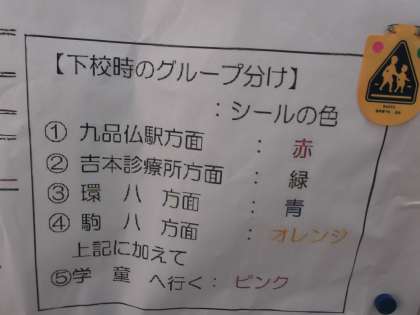 【下校時のグループ分け】
：シールの色
① 九品仏駅方面 ： 赤
② 吉本診療所方面 ： 緑
③ 環八 方面 ： 青
④ 駒八 方面 ： オレンジ
上記に加えて
⑤学童 へ行く： ピンク